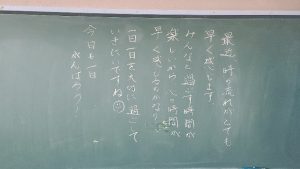 最近、時の流れがとても
早く感じます。
みんなと過ごす時間が
楽しいから、この時間が
早く感じるのかな?
一日一日を大切に過ごして
いきたいですね
今日も一日
がんばろう!